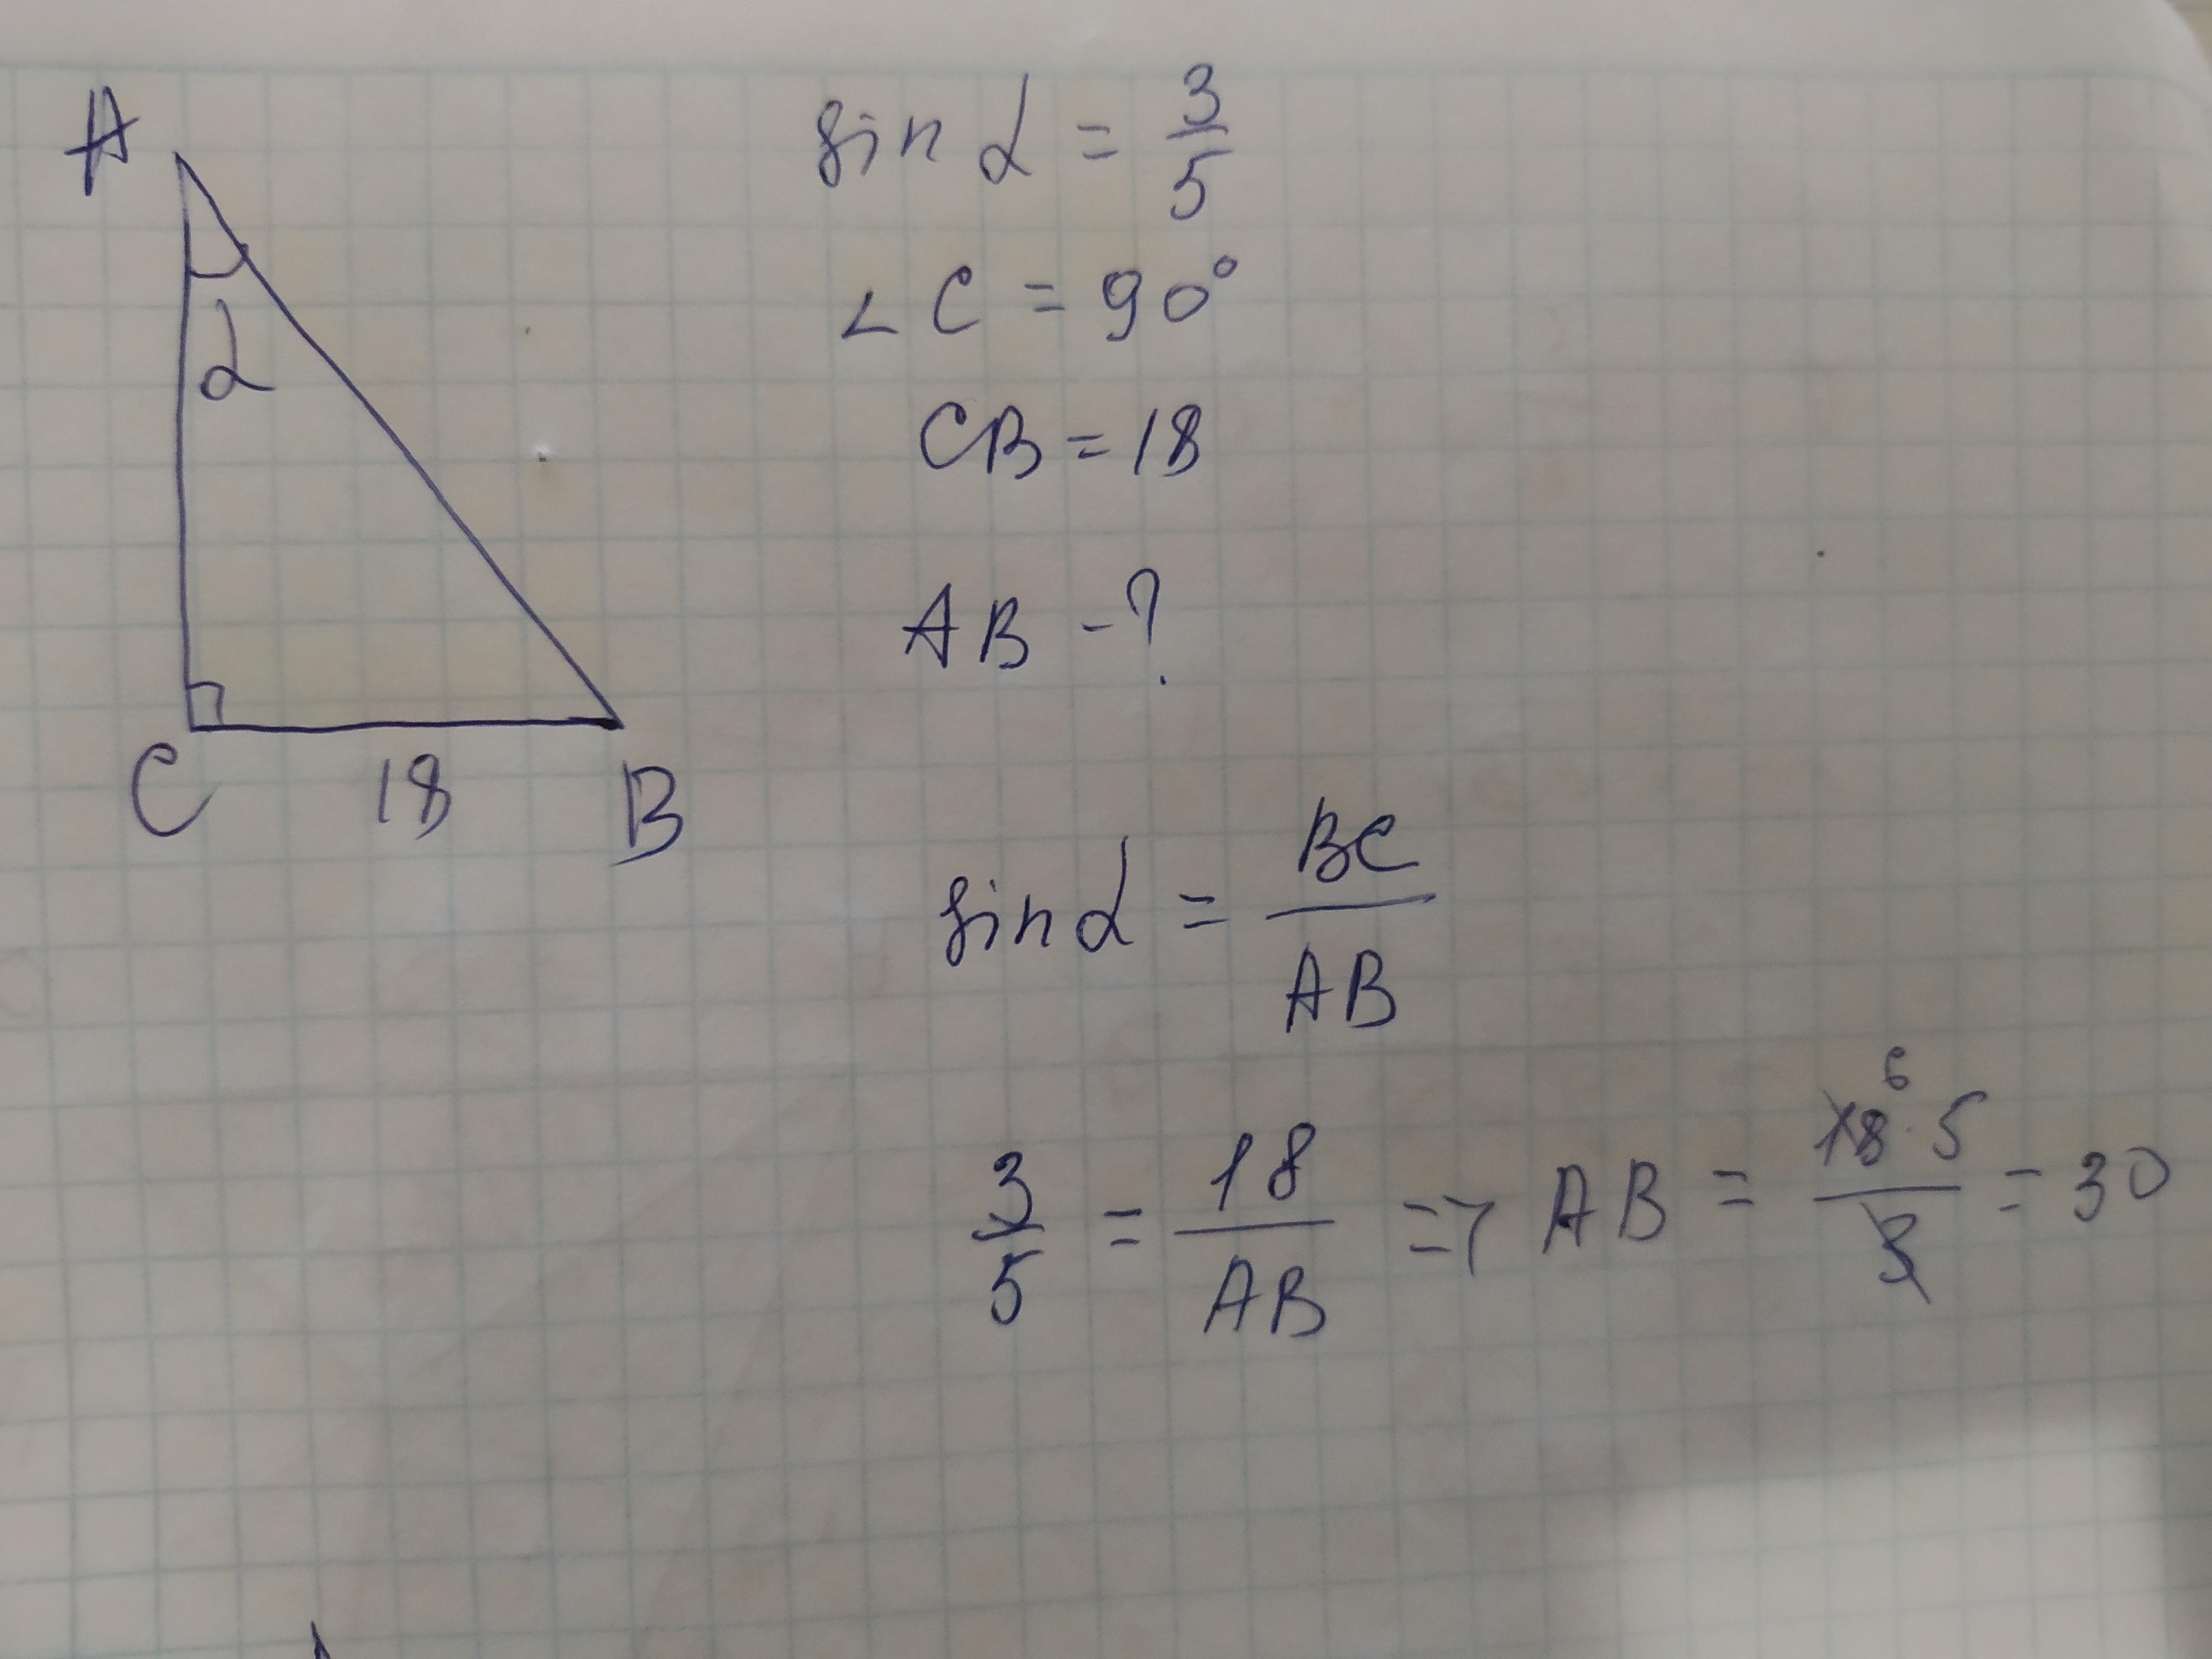 A
α
C
18
B
sin α = 3/5
∠ C = 90°
CB = 18
AB - ?
sin α = BC/AB
3/5 = 18/AB => AB = 18⁶ · 5/3 = 30